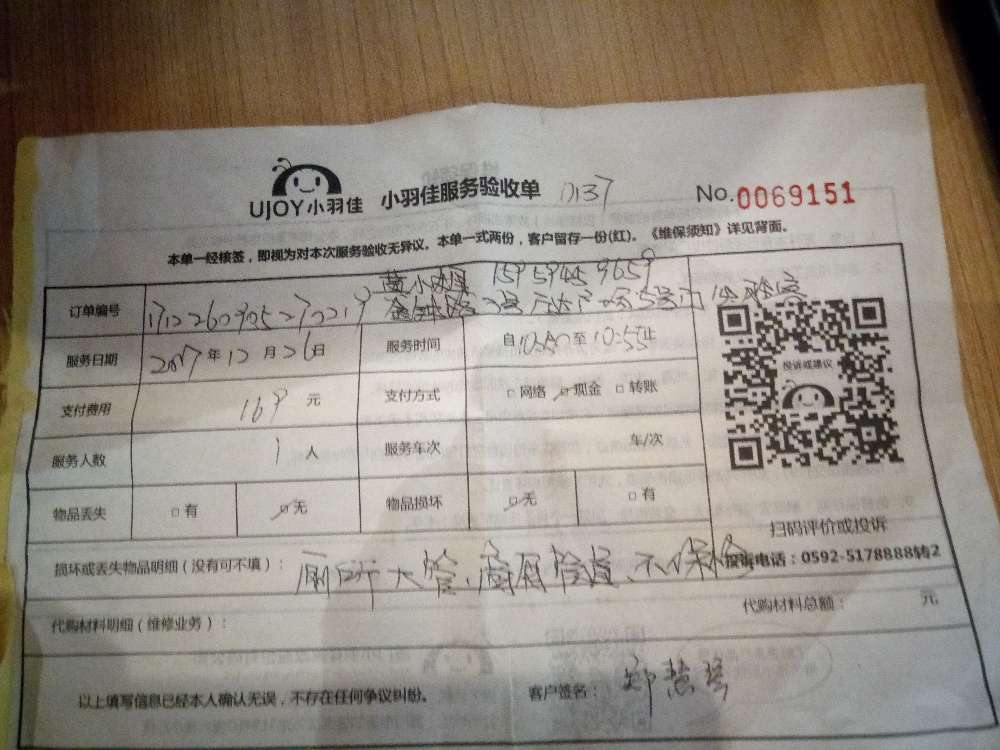 UJOY小羽佳 小羽佳服务验收单 17137 No.0069151
本单一经核签，即视为对本次服务验收无异议。本单一式两份，客户留存一份(红)。《维保须知》详见背面。
订单编号
服务日期 2017年12月26日 服务时间 自10:50至10:55止
投诉或建议
支付费用 169 元 支付方式 □网络 □现金 □转账
服务人数 1 人 服务车次 年/次
物品丢失 □有 □无 物品损坏 □无 □有
扫码评价或投诉
损坏或丢失物品明细（没有可不填）： 厕所大管、厨房管道、不保修
投诉电话：0592-5178888转2
代购材料明细（维修业务）： 代购材料总额： 元
以上填写信息已经本人确认无误，不存在任何争议纠纷。 客户签名：